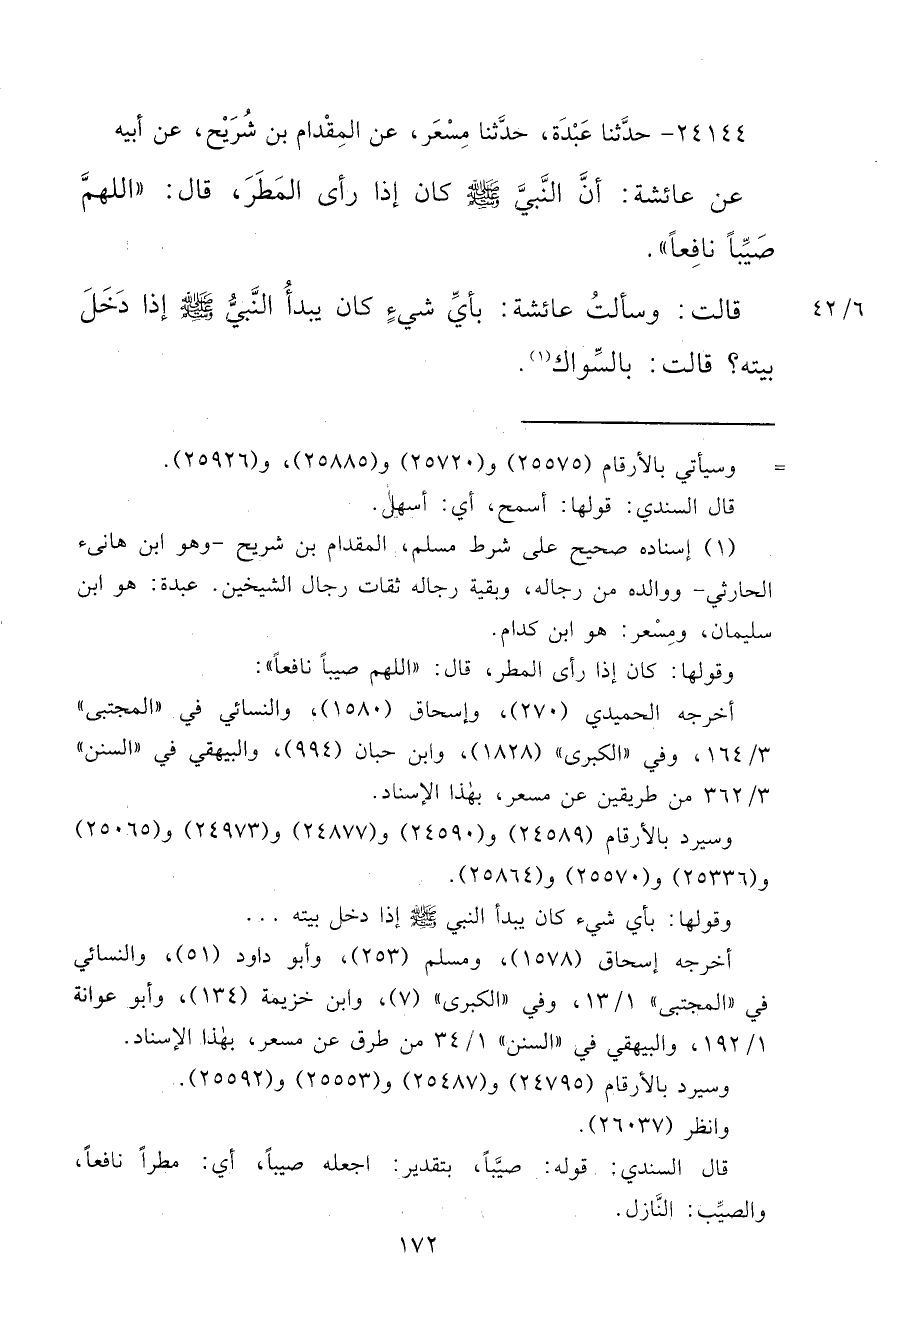 ٢٤١٤٤- حدَّثنا عَبْدَة، حدَّثنا مِسْعَر، عن المِقْدام بن شُرَيْح، عن أبيه
عن عائشة: أنَّ النَّبيَّ ﷺ كان إذا رأى المَطَرَ، قال: «اللهمَّ
صَيِّباً نافِعاً».
٤٢/٦ قالت: وسألتُ عائشة: بأيِّ شيءٍ كان يبدأُ النَّبيُّ ﷺ إذا دَخَلَ
بيته؟ قالت: بالسِّواك(١).
= وسيأتي بالأرقام (٢٥٥٧٥) و(٢٥٧٢٠) و(٢٥٨٨٥)، و(٢٥٩٢٦).
قال السندي: قولها: أسمح، أي: أسهل.
(١) إسناده صحيح على شرط مسلم، المقدام بن شريح -وهو ابن هانىء
الحارثي- ووالده من رجاله، وبقية رجاله ثقات رجال الشيخين. عبدة: هو ابن
سليمان، ومِسْعر: هو ابن كدام.
وقولها: كان إذا رأى المطر، قال: «اللهم صيباً نافعاً»:
أخرجه الحميدي (٢٧٠)، وإسحاق (١٥٨٠)، والنسائي في «المجتبى»
١٦٤/٣، وفي «الكبرى» (١٨٢٨)، وابن حبان (٩٩٤)، والبيهقي في «السنن»
٣٦٢/٣ من طريقين عن مسعر، بهٰذا الإسناد.
وسيرد بالأرقام (٢٤٥٨٩) و(٢٤٥٩٠) و(٢٤٨٧٧) و(٢٤٩٧٣) و(٢٥٠٦٥)
و(٢٥٣٣٦) و(٢٥٥٧٠) و(٢٥٨٦٤).
وقولها: بأي شيء كان يبدأ النبي ﷺ إذا دخل بيته ...
أخرجه إسحاق (١٥٧٨)، ومسلم (٢٥٣)، وأبو داود (٥١)، والنسائي
في «المجتبى» ١٣/١، وفي «الكبرى» (٧)، وابن خزيمة (١٣٤)، وأبو عوانة
١٩٢/١، والبيهقي في «السنن» ٣٤/١ من طرق عن مسعر، بهٰذا الإسناد.
وسيرد بالأرقام (٢٤٧٩٥) و(٢٥٤٨٧) و(٢٥٥٥٣) و(٢٥٥٩٢).
وانظر (٢٦٠٣٧).
قال السندي: قوله: صيَّباً، بتقدير: اجعله صيباً، أي: مطراً نافعاً،
والصيِّب: النَّازل.
١٧٢